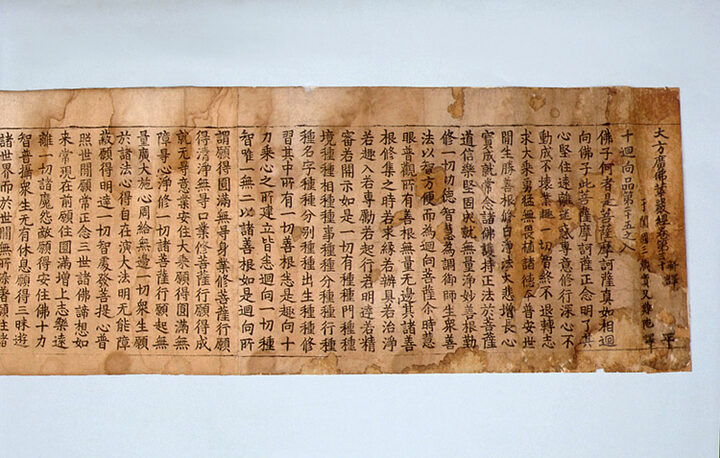 大方廣佛華嚴經卷第三十 新譯
于闐國三藏實叉難陀譯 平
十迴向品第二十五之八
佛子何者是菩薩摩訶薩真如相迴
向佛子此菩薩摩訶薩正念明了其
心堅住遠離迷惑專意修行深心不
動成不壞業趣一切智終不退轉志
求大乘勇猛無畏植諸德本普安世
間生勝善根修白淨法大悲增長心
寶成就常念諸佛護持正法於菩薩
道信樂堅固成就無量淨妙善根勤
修一切功德智慧為調御師生眾善
法以智方便而為迴向菩薩介時慧
眼普觀所有善根無量無邊其諸善
根修集之時若求緣若辨具若治淨
若趣入若專勵若起行若明達若精
審若開示如是一切有種種門種種
境種種相種種事種種分種種行種
種名字種種分別種種出生種種修
習其中所有一切善根悉是趣向十
力乘心之所建立皆悉迴向一切種
智唯一無二以諸善根如是迴向所
謂願得圓滿無导身業修菩薩行願
得清淨無导口業修菩薩行願得成
就无导意業安住大乘願得圓滿無
障导心淨修一切諸菩薩行願起無
量廣大施心周給無邊一切眾生願
於諸法心得自在演大法明无能障
蔽願得明達一切智處發菩提心普
照世間願常正念三世諸佛諦想如
來常現在前願住圓滿增上志樂遠
離一切諸魔怨敵願得安住佛十力
智普攝眾生无有休息願得三昧遊
諸世界而於世間無所染著願住諸